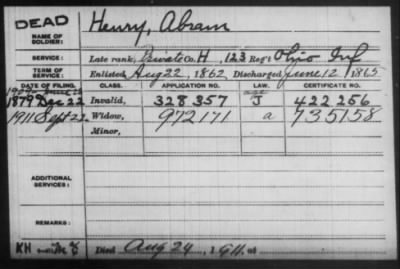 DEAD
NAME OF SOLDIER: Henry, Abram
SERVICE: Late rank, Private Co. H, 123 Reg't Ohio Inf
TERM OF SERVICE: Enlisted Aug 22, 1862 Discharged June 12 1865
DATE OF FILING. CLASS. APPLICATION NO. LAW. CERTIFICATE NO.
1879 Dec 22 Invalid, 328357 J 422256
1911 Sept 22 Widow, 972171 a 735158
Minor,
ADDITIONAL SERVICES:
REMARKS:
KH Died Aug 24, 1911. at